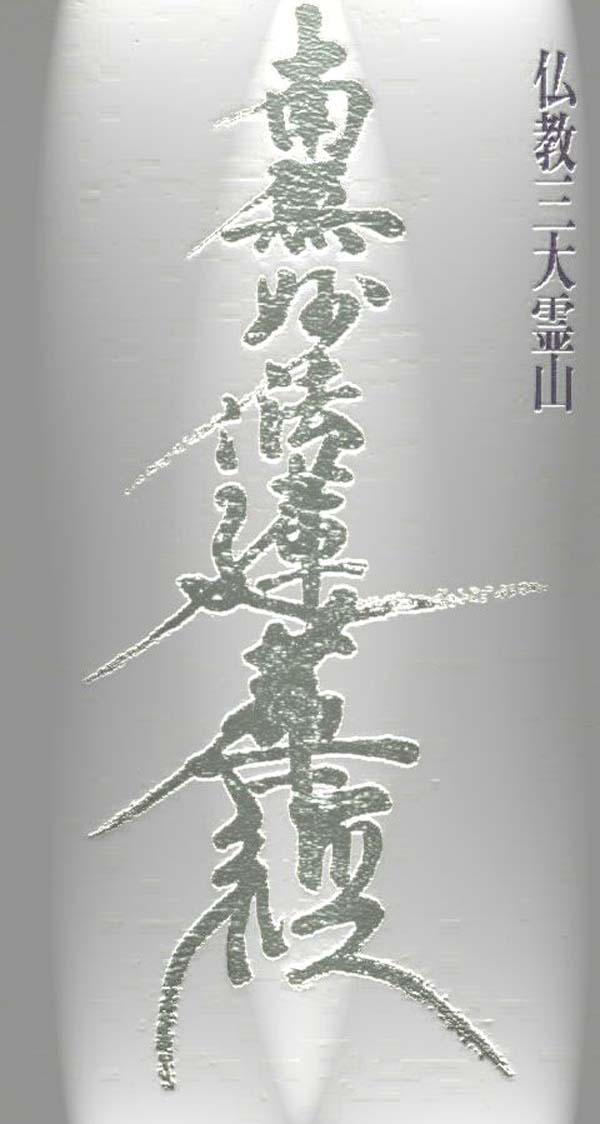 仏教三大霊山
南無妙法蓮華経